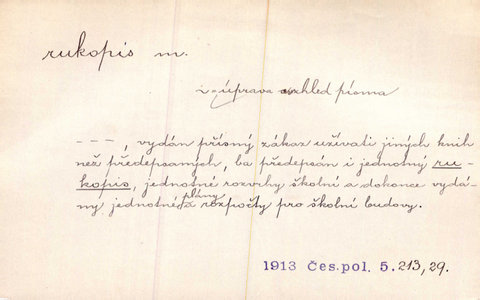 rukopis m.
úprava vzhled písma
- - - , vydán přísný zákaz užívati jiných knih
než předepsaných, ba předepsán i jednotný ru-
kopis, jednotné rozvrhy školní a dokonce vydá-
ny jednotné plány a rozpočty pro školní budovy.
1913 Čes. pol. 5. 213, 29.